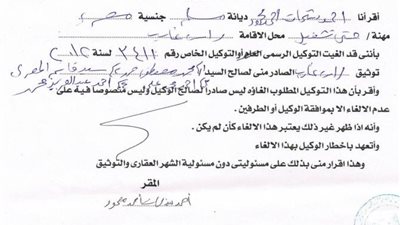 أقر أنا / احمد ديانة / مسلم جنسية / مصرى
مهنة / فنى تشغيل محل الاقامة / راس غارب
بأننى قد الغيت التوكيل الرسمى العام أو التوكيل الخاص رقم ٣٤١١ لسنة ٢٠١٢
توثيق راس غارب الصادر منى لصالح السيد / محمد مصطفى سيد
وأقر بأن هذا التوكيل المطلوب الغاؤه ليس صادرا لصالح الوكيل وليس منصوصا فيه على
عدم الالغاء الا بموافقة الوكيل أو الطرفين .
وأنه اذا ظهر غير ذلك يعتبر هذا الالغاء كأن لم يكن .
وأتعهد بأخطار الوكيل بهذا الالغاء
وهذا اقرار منى بذلك على مسئوليتى دون مسئولية الشهر العقارى والتوثيق
المقر
احمد احمد محمود